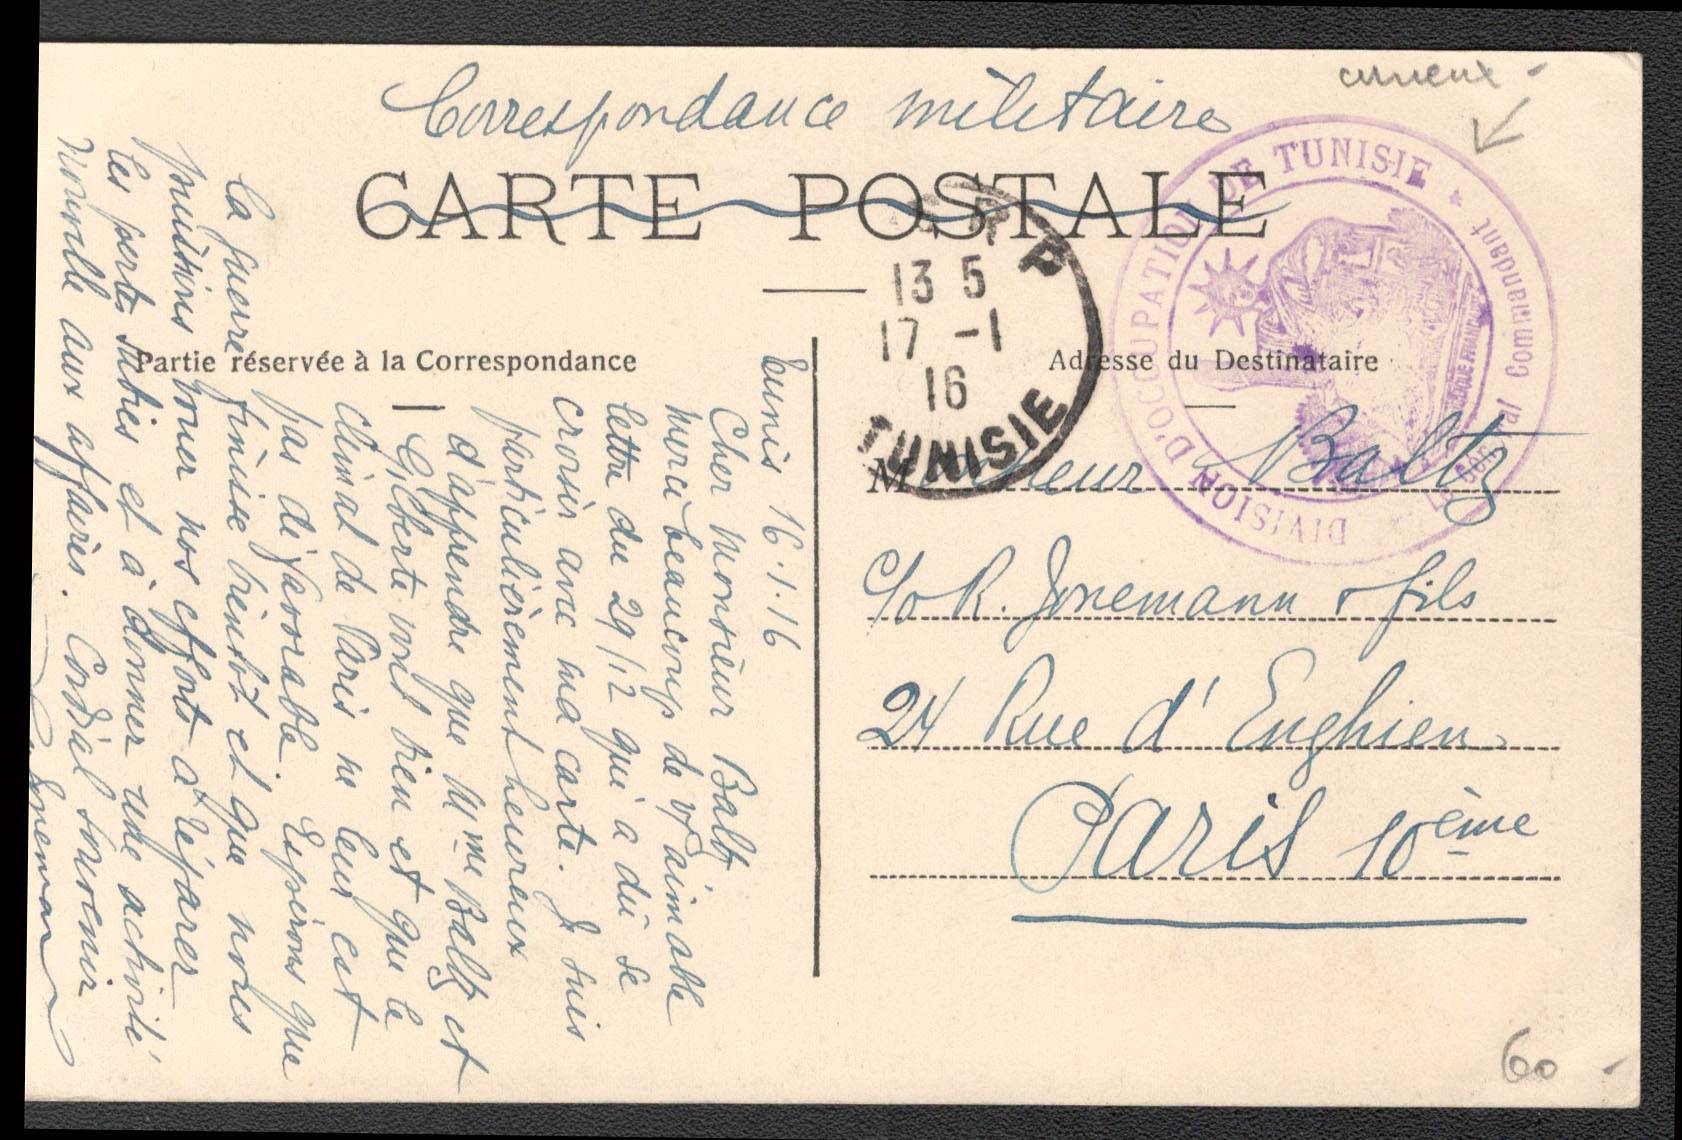 curieux
Correspondance militaire
CARTE POSTALE
DIVISION D'OCCUPATION DE TUNISIE * Le Général Commandant
RÉPUBLIQUE FRANÇAISE
R P
13 5
17 -1
16
TUNISIE
Partie réservée à la Correspondance
Adresse du Destinataire
Tunis 16.1.16
Cher Monsieur Baltz
Merci beaucoup de vr aimable
lettre du 29/12 qui a dû se
croisér avec ma carte. Je suis
particulièrement heureux
d'apprendre que Mme Baltz et
Gilberte vont bien et que le
climat de Paris ne leur est
pas défavorable. Espérons que
la guerre finisse bientôt et que nous
puissions vouer nos efforts à réparer
les pertes subies et à donner une activité
nouvelle aux affaires. Cordial souvenir
Monsieur Baltz
c/o R. Jonemann & fils
24 Rue d'Enghien
Paris 10ème
60